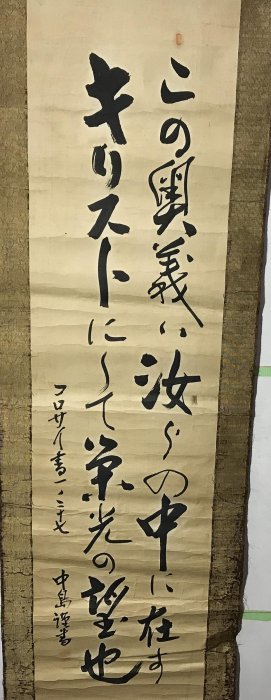 この奥義は汝らの中に在す
キリストにして栄光の望也
コロサイ書一ノ二十七
中島謹書